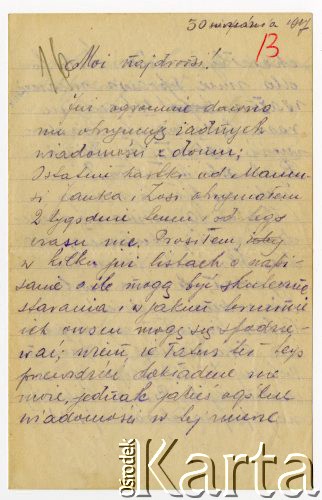 30 września 1917
13
16
Moi najdrożsi!
już ogromnie dawno
nie otrzymuję żadnych
wiadomości z domu;
Ostatnie kartki od Mamu-
si Janka i Zosi otrzymałem
2 tygodnie temu i od tego
czasu nic. Prosiłem, żeby
w kilku listach o napi-
sanie o ile mogą być skuteczne
starania i w jakim terminie
ich owocu mogę się spodzie-
wać; wiem, że Tatuś też tego
przewidzieć dokładnie nie
może, jednak jakieś ogólne
wiadomości w tej mierze
Ośrodek
Karta